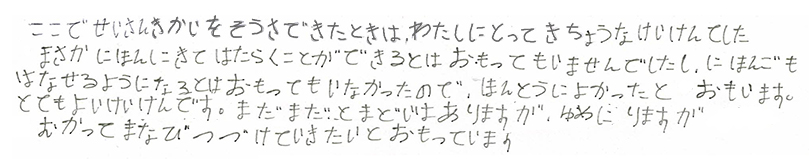 ここで せいさんきかいを そうさできたときは、わたしにとって きちょうな けいけんでした
まさか にほんにきて はたらくことが できるとは おもってもいませんでしたし、にほんごも
はなせるようになるとは おもってもいなかったので、ほんとうに よかったと おもいます。
とてもよいけいけんです。まだまだ とまどいは ありますが、ゆめに りますが
むかって まなびつづけていきたいと おもっています